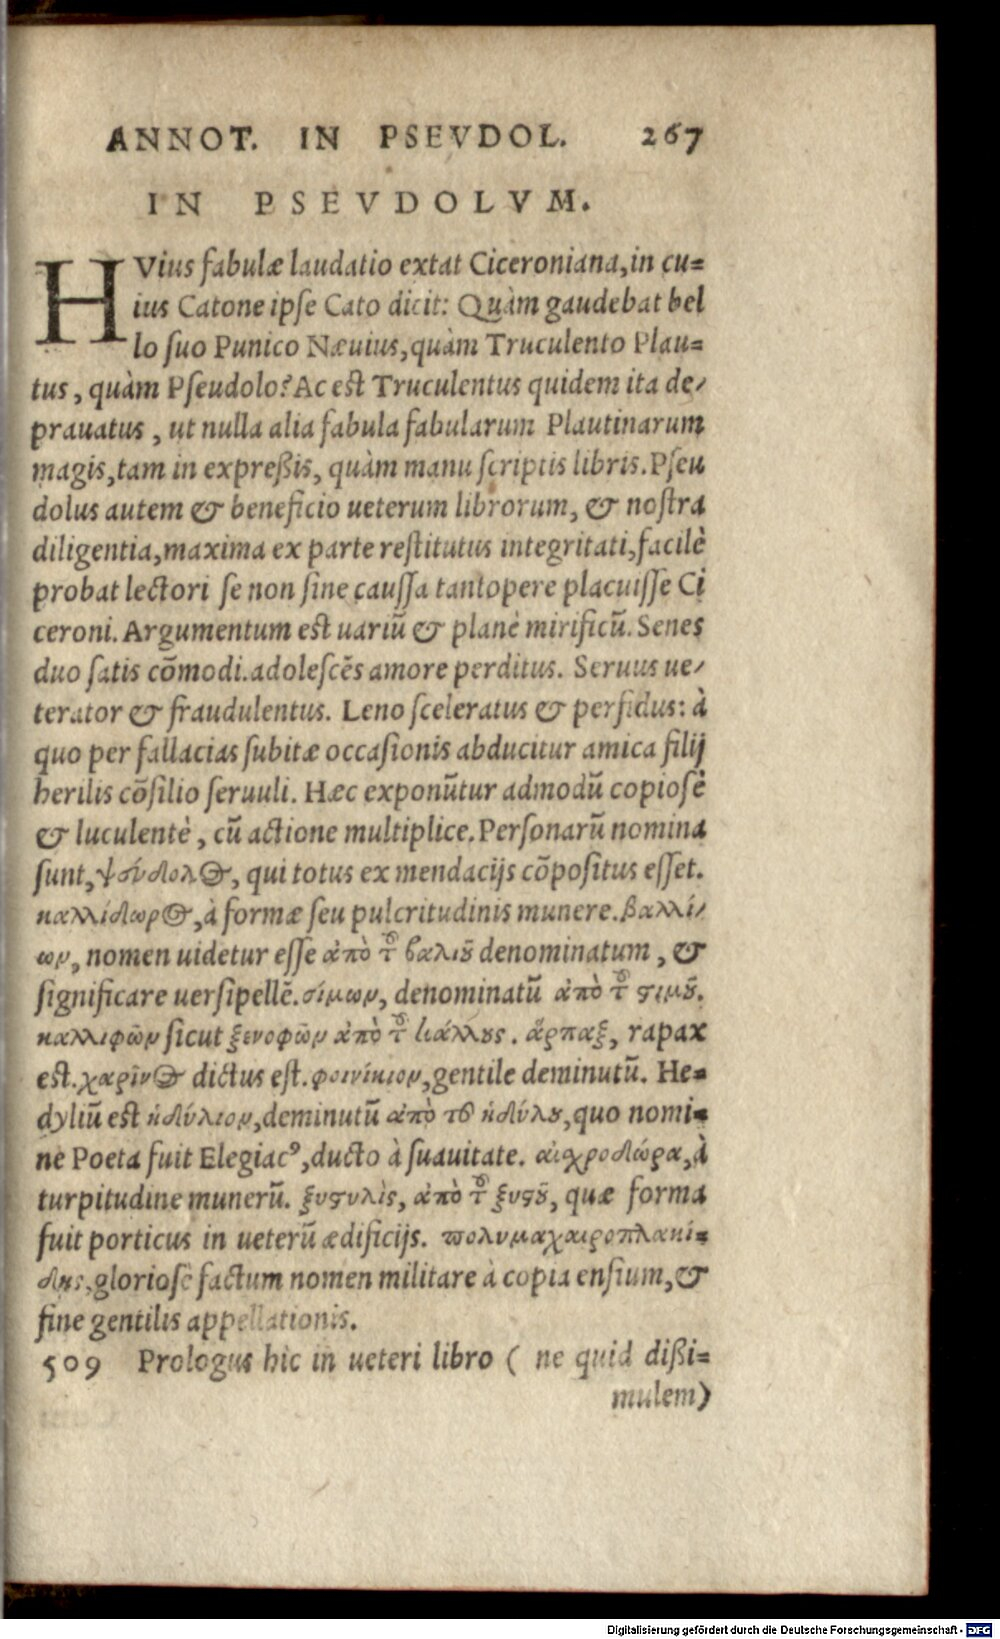 ANNOT. IN PSEVDOL. 267
IN PSEVDOLVM.
HVius fabulæ laudatio extat Ciceroniana, in cu=
ius Catone ipſe Cato dicit: Quàm gaudebat bel
lo ſuo Punico Næuius, quàm Truculento Plau=
tus, quàm Pſeudolo? Ac eſt Truculentus quidem ita de/
prauatus, ut nulla alia fabula fabularum Plautinarum
magis, tam in expreßis, quàm manu ſcriptis libris. Pſeu
dolus autem & beneficio ueterum librorum, & noſtra
diligentia, maxima ex parte reſtitutus integritati, facilè
probat lectori ſe non ſine cauſſa tantopere placuiſſe Ci
ceroni. Argumentum eſt uariũ & planè mirificũ. Senes
duo ſatis cõmodi. adoleſcẽs amore perditus. Seruus ue/
terator & fraudulentus. Leno ſceleratus & perfidus: à
quo per fallacias ſubitæ occaſionis abducitur amica filij
herilis cõſilio ſeruuli. Hæc exponũtur admodũ copioſè
& luculentè, cũ actione multiplice. Perſonarũ nomina
ſunt, ψσύδολος, qui totus ex mendacijs cõpoſitus eſſet.
καλλίδωρος, à formæ ſeu pulcritudinis munere. βαλλί/
ων, nomen uidetur eſſe ἀπὸ τοῦ βαλιοῦ denominatum, &
ſignificare uerſipellẽ. σίμων, denominatũ ἀπὸ τοῦ σιμοῦ.
καλλιφῶν ſicut ξενοφῶν ἀπὸ τοῦ κάλλους. ἅρπαξ, rapax
eſt. χαρῖνος dictus eſt. φοινίκιον, gentile deminutũ. He=
dyliũ eſt ἡδύλιον, deminutũ ἀπὸ τοῦ ἡδύλου, quo nomi=
ne Poeta fuit Elegiacꝰ, ducto à ſuauitate. αἰσχροδώρα, à
turpitudine munerũ. ξυστυλὶς, ἀπὸ τοῦ ξυστοῦ, quæ forma
fuit porticus in ueterũ ædificijs. πολυμαχαιροπλακί=
δης, glorioſè factum nomen militare à copia enſium, &
fine gentilis appellationis.
509 Prologus hic in ueteri libro ( ne quid dißi=
mulem)
Digitalisierung gefördert durch die Deutsche Forschungsgemeinschaft - DFG